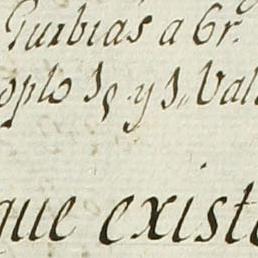 Turbias a 6r.
oplo Is y I. Val
que existe